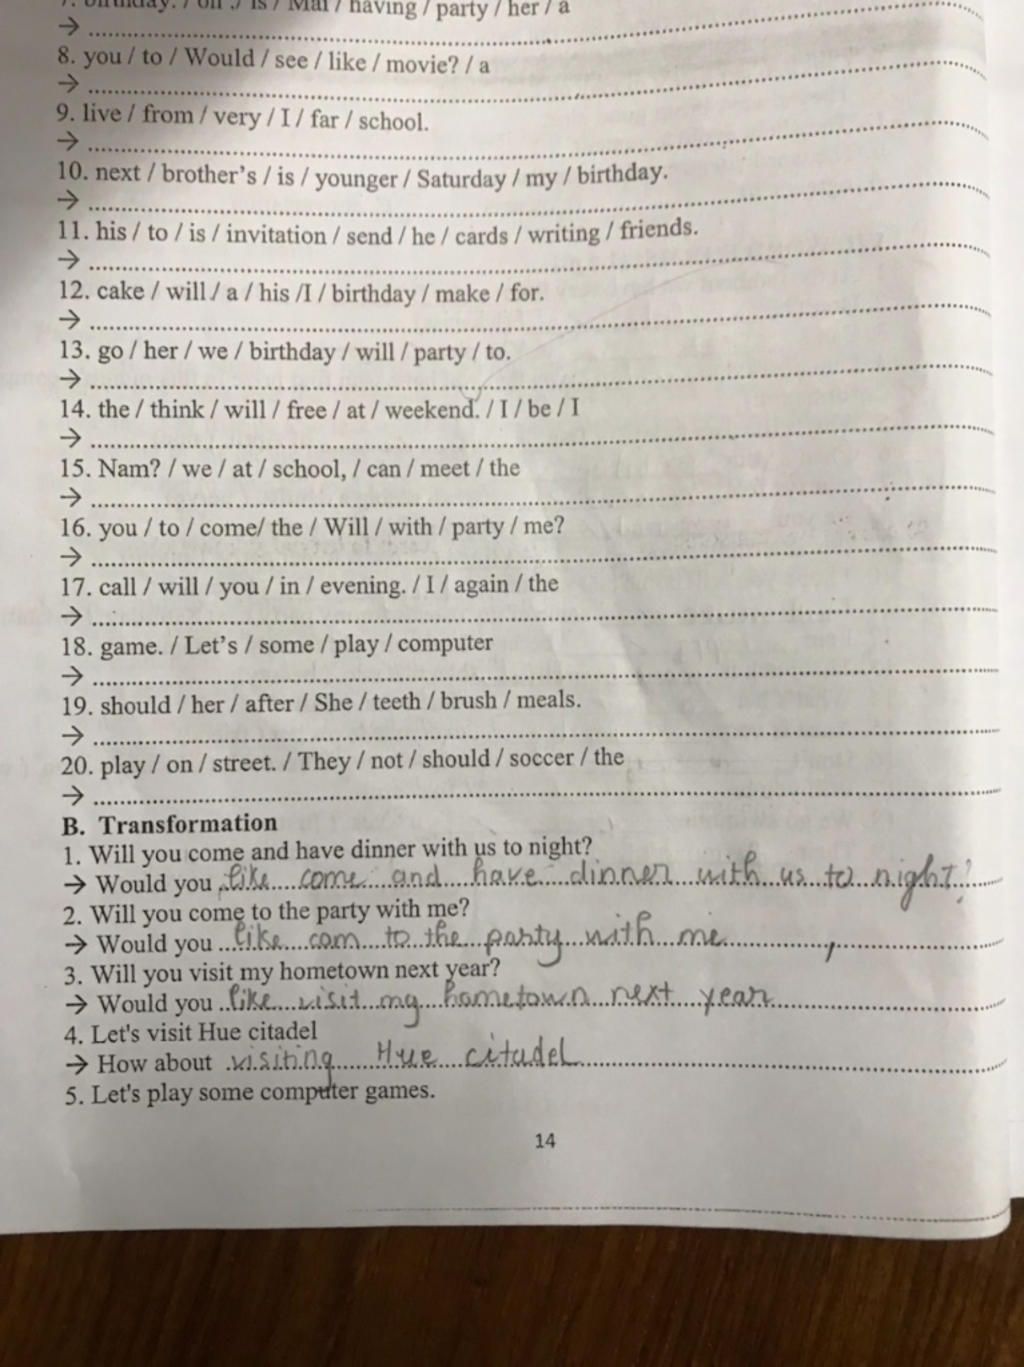 birthday. / on / is / Mai / having / party / her / a
→
8. you / to / Would / see / like / movie? / a
→
9. live / from / very / I / far / school.
→
10. next / brother's / is / younger / Saturday / my / birthday.
→
11. his / to / is / invitation / send / he / cards / writing / friends.
→
12. cake / will / a / his /I / birthday / make / for.
→
13. go / her / we / birthday / will / party / to.
→
14. the / think / will / free / at / weekend. / I / be / I
→
15. Nam? / we / at / school, / can / meet / the
→
16. you / to / come/ the / Will / with / party / me?
→
17. call / will / you / in / evening. / I / again / the
→
18. game. / Let's / some / play / computer
→
19. should / her / after / She / teeth / brush / meals.
→
20. play / on / street. / They / not / should / soccer / the
→
B. Transformation
1. Will you come and have dinner with us to night?
→ Would you like come and have dinner with us to night?
2. Will you come to the party with me?
→ Would you like com to the party with me
3. Will you visit my hometown next year?
→ Would you like visit my hometown next year
4. Let's visit Hue citadel
→ How about visiting Hue citadel
5. Let's play some computer games.
14